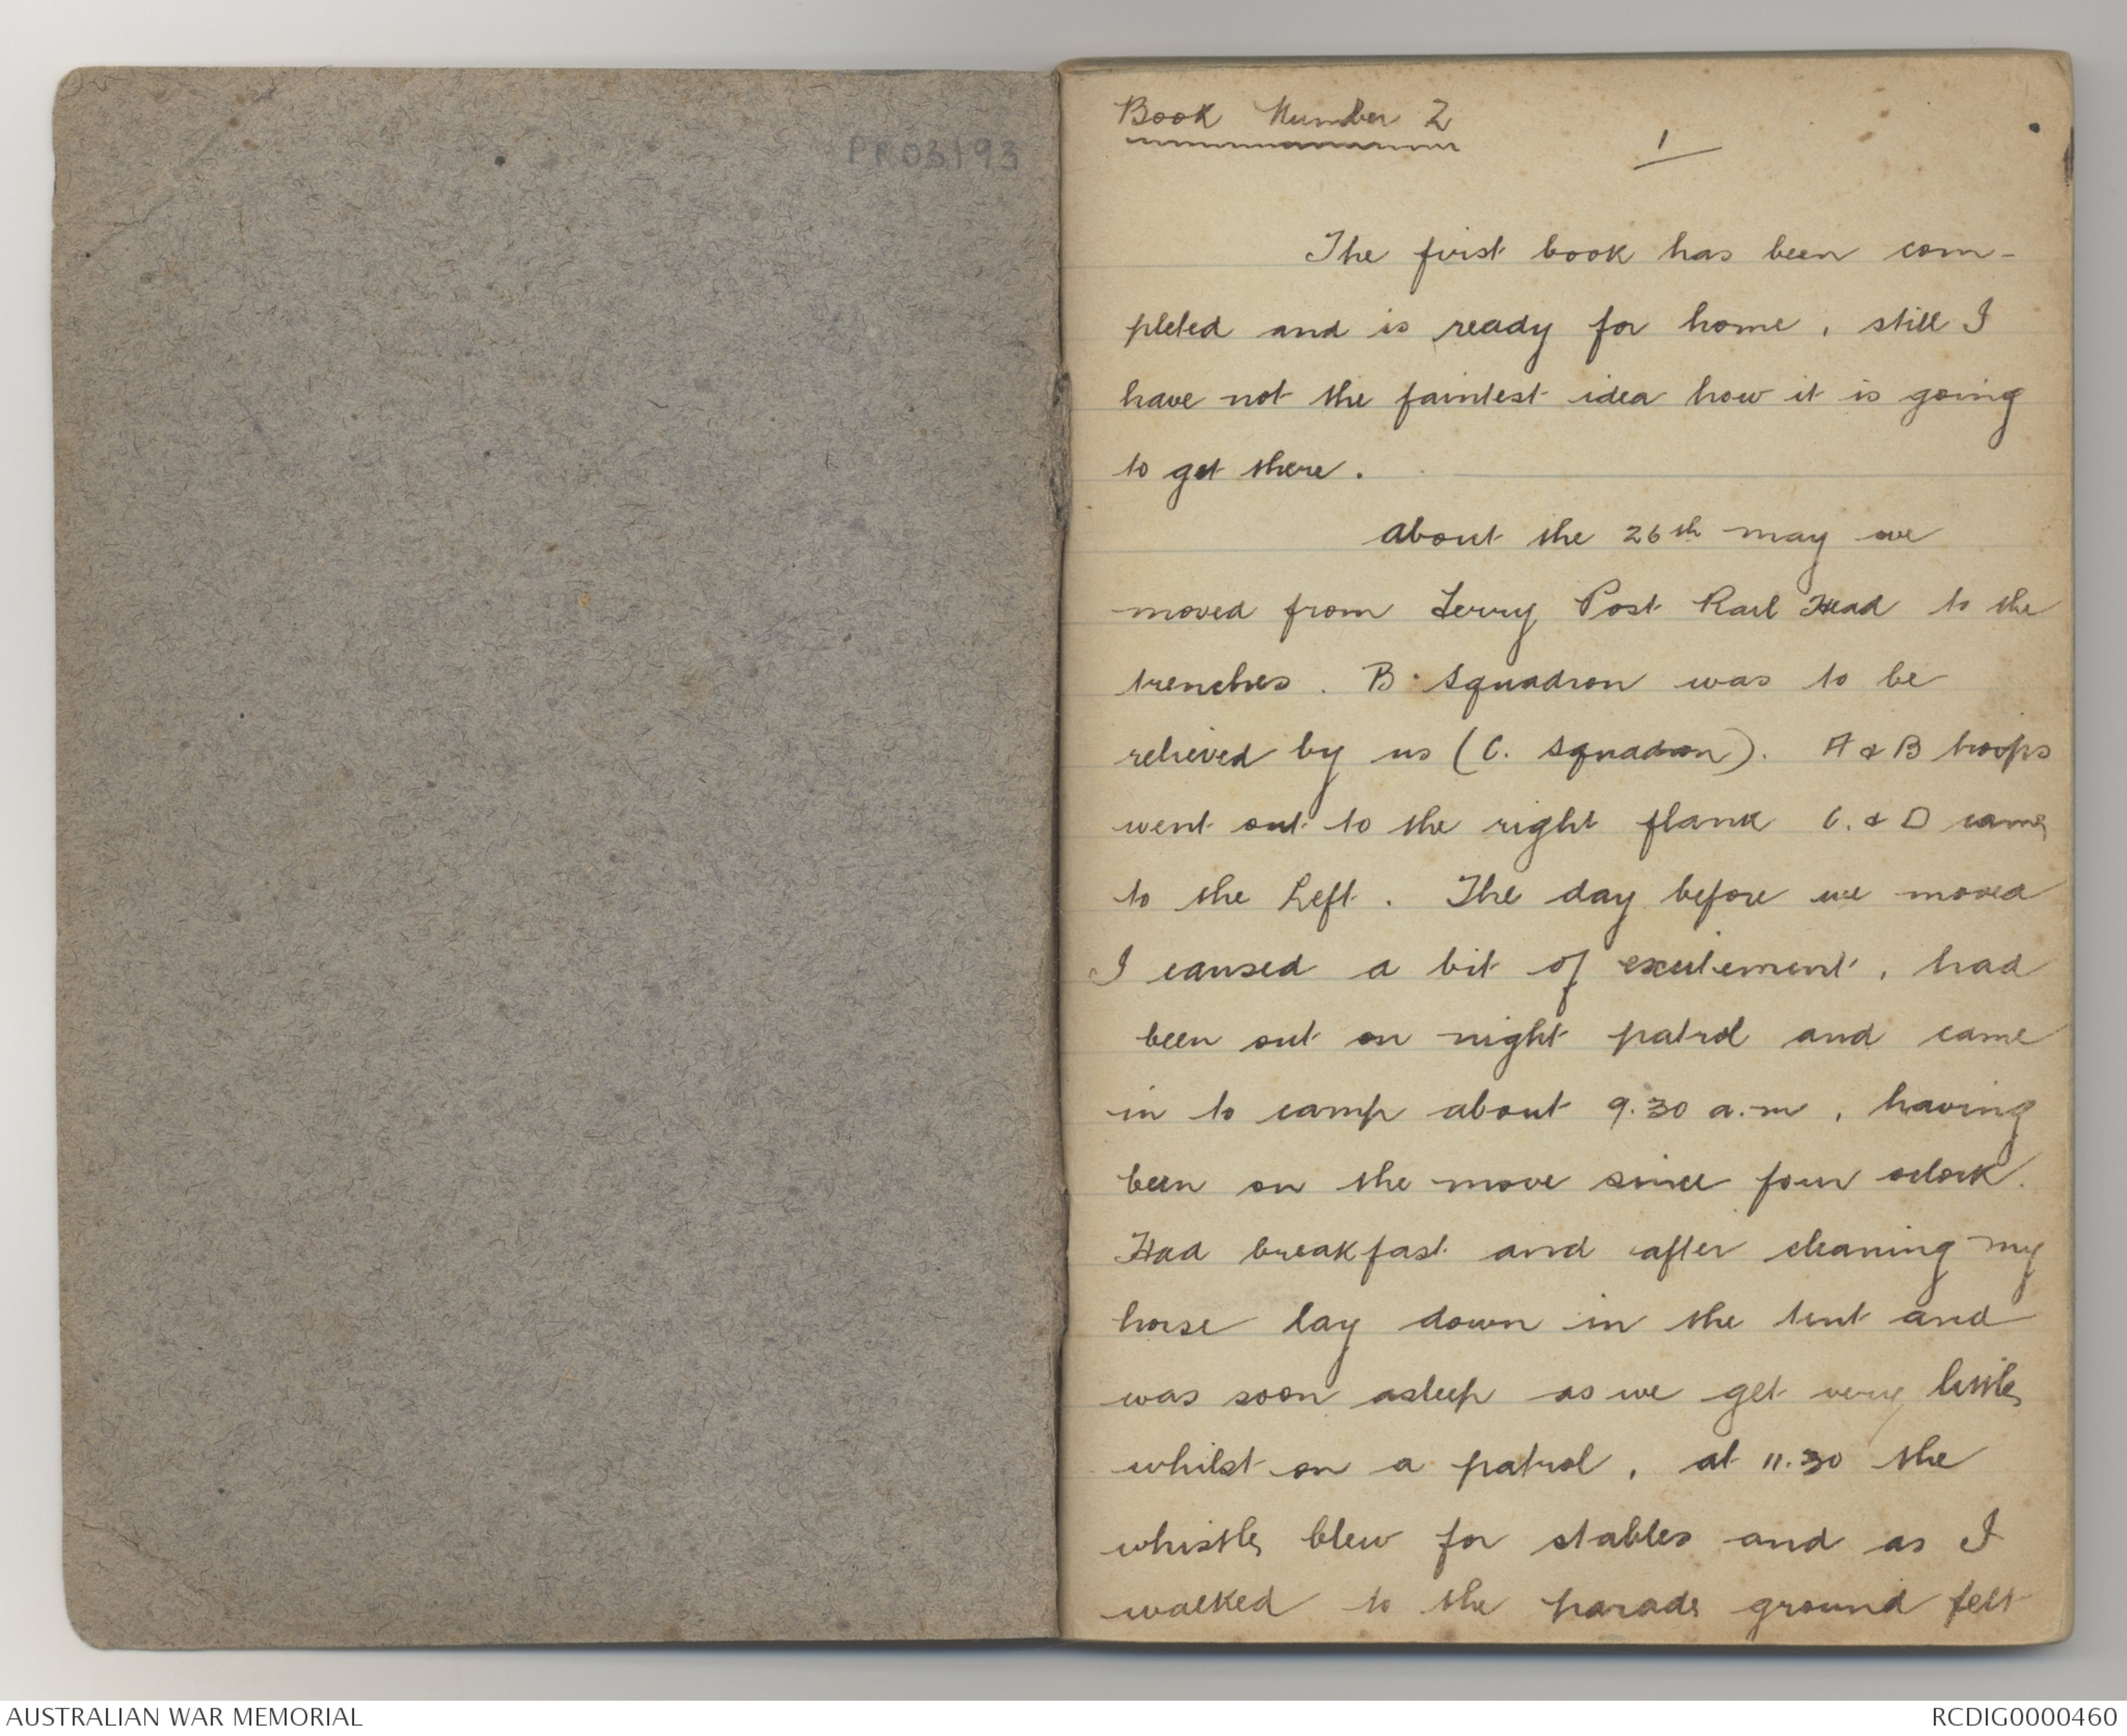 PR03193
Book Number 2
1
The first book has been com-
pleted and is ready for home, still I
have not the faintest idea how it is going
to get there.
About the 26th may we
moved from Ferry Post Rail Head to the
trenches. B. Squadron was to be
relieved by us (C. Squadron). A & B troops
went out to the right flank C. & D came
to the Left. The day before we moved
I caused a bit of excitement, had
been out on night patrol and came
in to camp about 9.30 a.m, having
been on the move since four oclock.
Had breakfast and after cleaning my
horse lay down in the tent and
was soon asleep as we get very little
whilst on a patrol, at 11.30 the
whistle blew for stables and as I
walked to the parade ground felt
AUSTRALIAN WAR MEMORIAL
RCDIG0000460